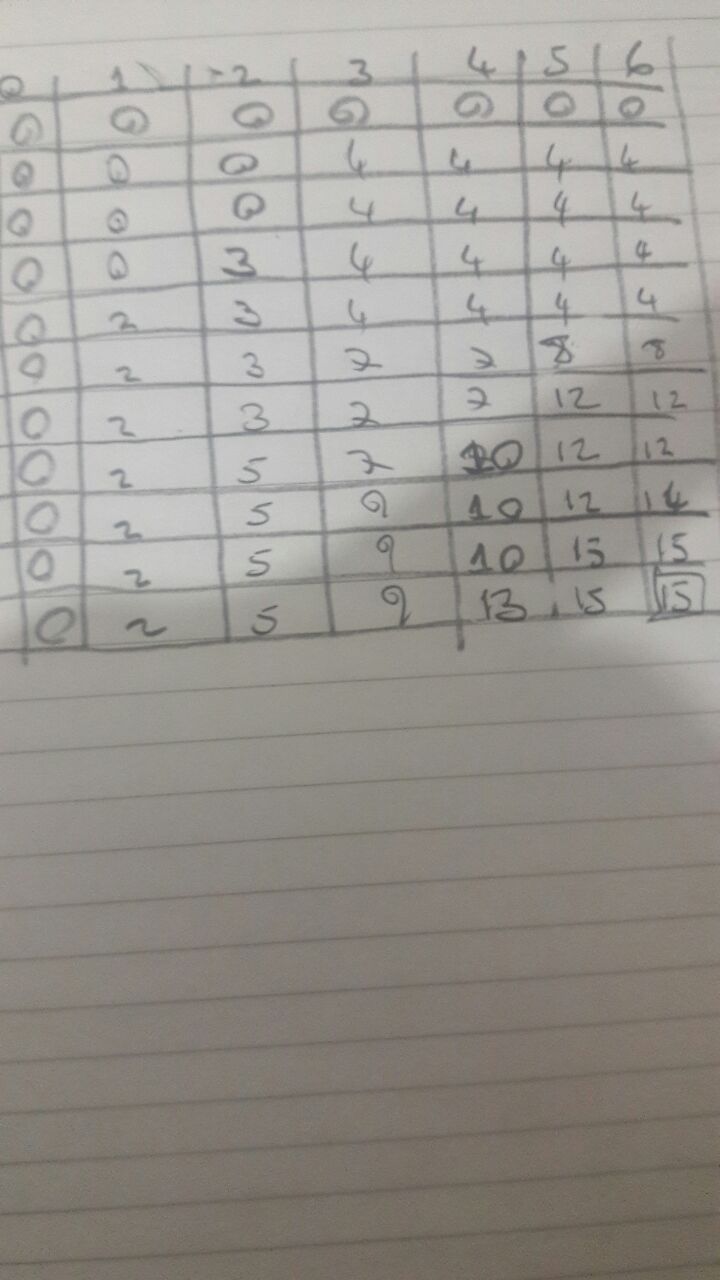 0 1 2 3 4 5 6
0 0 0 0 0 0 0
0 0 0 4 4 4 4
0 0 0 4 4 4 4
0 0 3 4 4 4 4
0 2 3 4 4 4 4
0 2 3 7 7 8 8
0 2 3 7 7 12 12
0 2 5 7 10 12 12
0 2 5 9 10 12 14
0 2 5 9 10 15 15
0 2 5 9 13 15 15